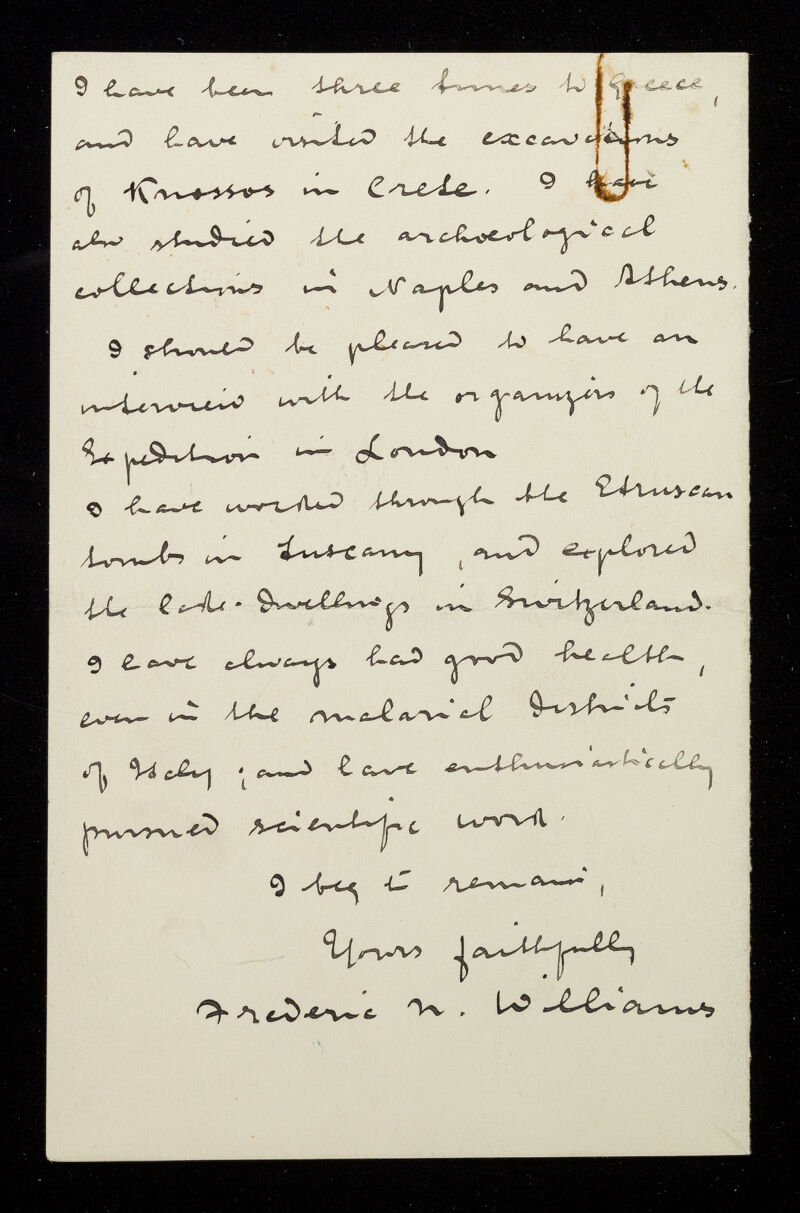 I have been three times to Greece,
and have visited the excavations
of Knossos in Crete. I have
also studied the archæological
collections in Naples and Athens.
I should be pleased to have an
interview with the organizers of the
Expedition in London
I have worked through the Etruscan
tombs in Tuscany, and explored
the lake-dwellings in Switzerland.
I have always had good health,
even in the malarial districts
of Italy; and have enthusiastically
pursued scientific work.
I beg to remain,
Yours faithfully
Frederic N. Williams